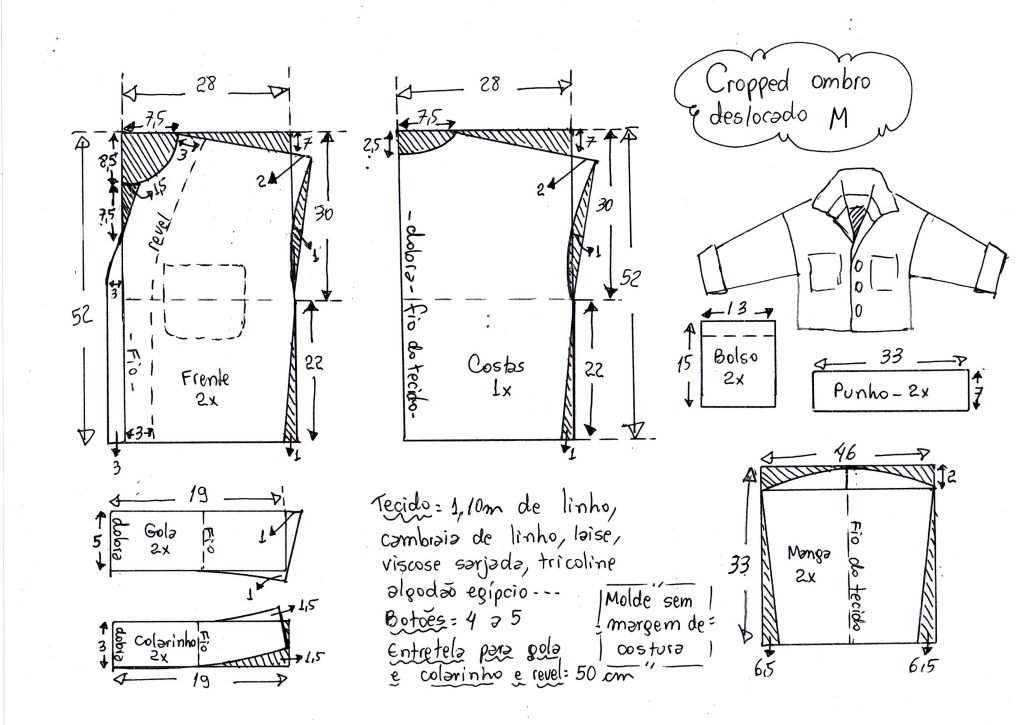 Cropped ombro
deslocado M
28
7,5
8,5
3
7
1,5
2
7,5
revel
30
1
3
52
- Fio -
Frente
2x
22
3
3
1
28
7,5
2,5
7
2
30
1
- dobra - fio do tecido -
52
Costas
1x
22
1
13
15
Bolso
2x
33
Punho - 2x
7
19
5
dobra
Gola
2x
Fio
1
1
3
dobra
Colarinho
2x
Fio
1,5
1,5
19
Tecido = 1,10m de linho,
cambraia de linho, laise,
viscose sarjada, tricoline
algodão egípcio ---
Botões = 4 a 5
Entretela para gola
e colarinho e revel = 50 cm
Molde sem
margem de
costura
46
2
33
Manga
2x
Fio do tecido
6,5
6,5